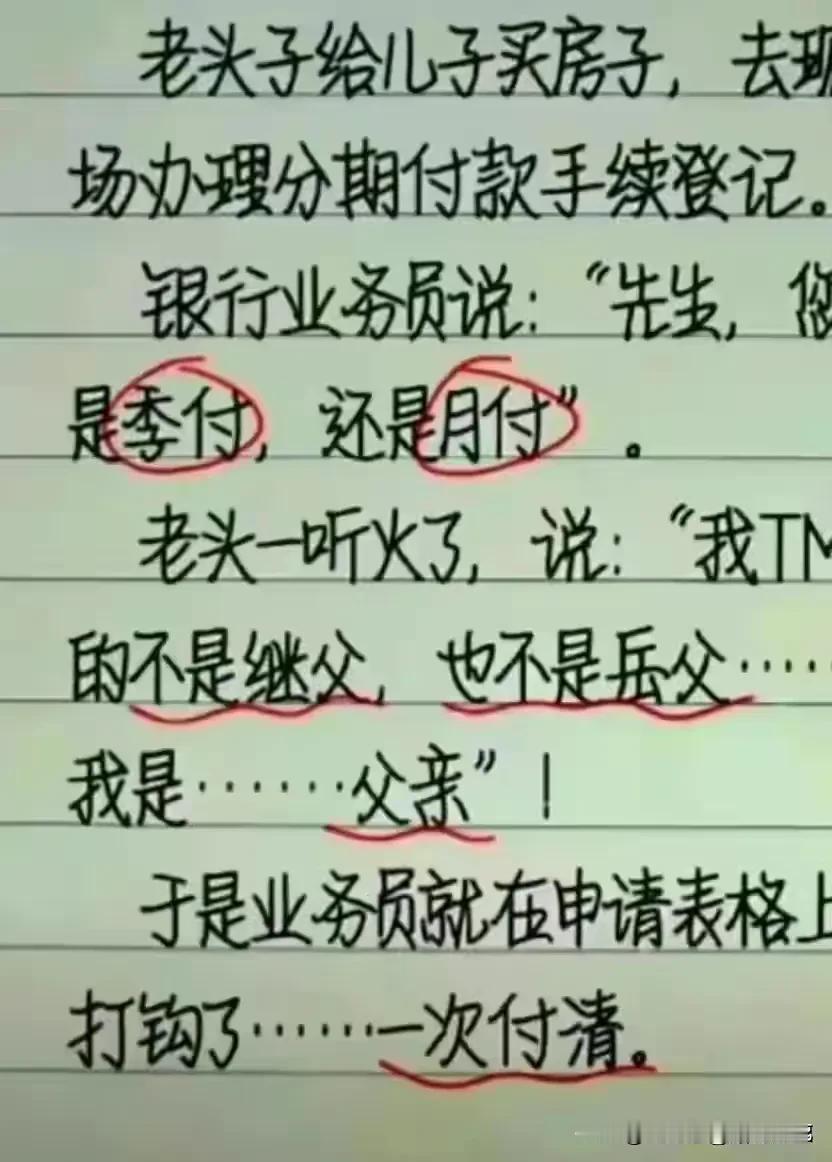 老头子给儿子买房子，去现
场办理分期付款手续登记。
银行业务员说：“先生，您
是季付，还是月付”。
老头一听火了，说：“我TM
的不是继父，也不是岳父……
我是……父亲”！
于是业务员就在申请表格上
打钩了……一次付清。